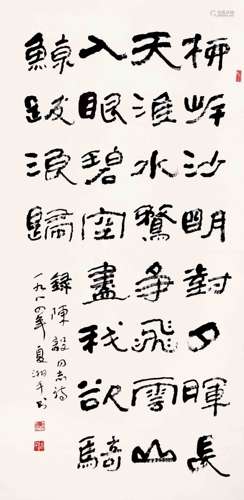 柳岸沙明對夕暉長
天淮水鶩争飛雲山
入眼碧空盡我欲騎
鯨跋浪歸
錄陳毅同志詩
一九八四年夏湘平書